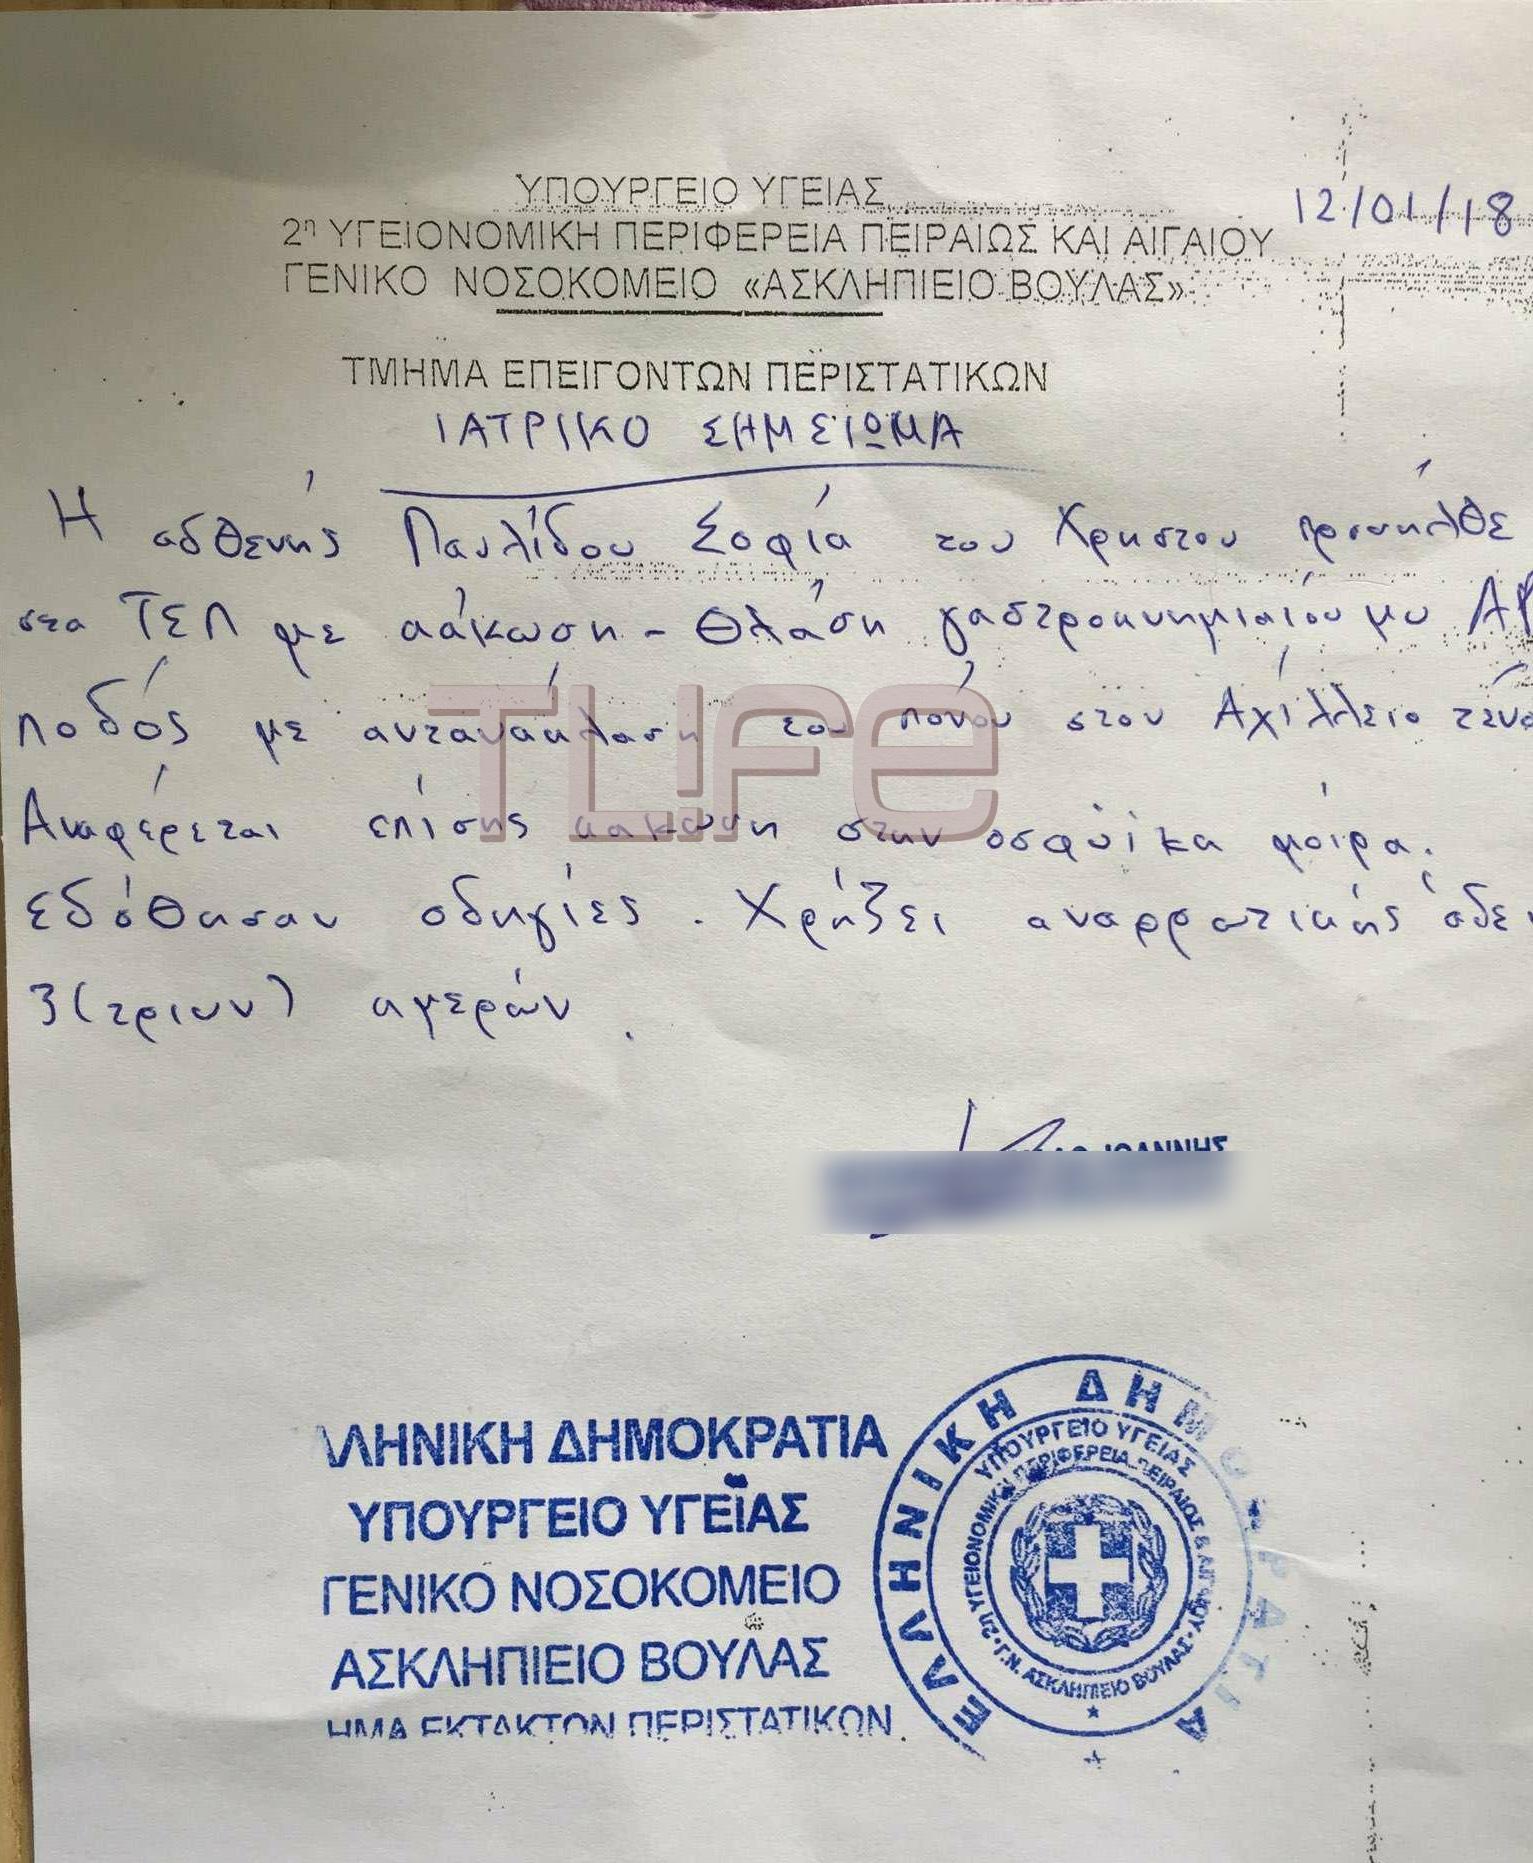 ΥΠΟΥΡΓΕΙΟ ΥΓΕΙΑΣ
12/01/18
2η ΥΓΕΙΟΝΟΜΙΚΗ ΠΕΡΙΦΕΡΕΙΑ ΠΕΙΡΑΙΩΣ ΚΑΙ ΑΙΓΑΙΟΥ
ΓΕΝΙΚΟ ΝΟΣΟΚΟΜΕΙΟ «ΑΣΚΛΗΠΙΕΙΟ ΒΟΥΛΑΣ»
ΤΜΗΜΑ ΕΠΕΙΓΟΝΤΩΝ ΠΕΡΙΣΤΑΤΙΚΩΝ
ΙΑΤΡΙΚΟ ΣΗΜΕΙΩΜΑ
Η ασθενής Παυλίδου Σοφία του Χρηστου προσήλθε
στα ΤΕΠ με κάκωση - Θλάση γαστροκνημιαίου μυ ΑΡ
ποδός με αντανάκλαση του πόνου στον Αχίλλειο τένο
Αναφέρεται επίσης κακωση στην οσφϋϊκα μοίρα.
εδόθησαν οδηγίες. Χρήζει αναρρωτικής άδει
3 (τριων) ημερών.
TLIFE
ΙΩΑΝΝΗΣ
ΛΛΗΝΙΚΗ ΔΗΜΟΚΡΑΤΙΑ
ΥΠΟΥΡΓΕΙΟ ΥΓΕΙΑΣ
ΓΕΝΙΚΟ ΝΟΣΟΚΟΜΕΙΟ
ΑΣΚΛΗΠΙΕΙΟ ΒΟΥΛΑΣ
ΗΜΑ ΕΚΤΑΚΤΩΝ ΠΕΡΙΣΤΑΤΙΚΩΝ
ΕΛΛΗΝΙΚΗ ΔΗΜΟΚΡΑΤΙΑ
ΥΠΟΥΡΓΕΙΟ ΥΓΕΙΑΣ
2η ΥΓΕΙΟΝΟΜΙΚΗ ΠΕΡΙΦΕΡΕΙΑ ΠΕΙΡΑΙΩΣ & ΑΙΓΑΙΟΥ
Γ.Ν. ΑΣΚΛΗΠΙΕΙΟ ΒΟΥΛΑΣ